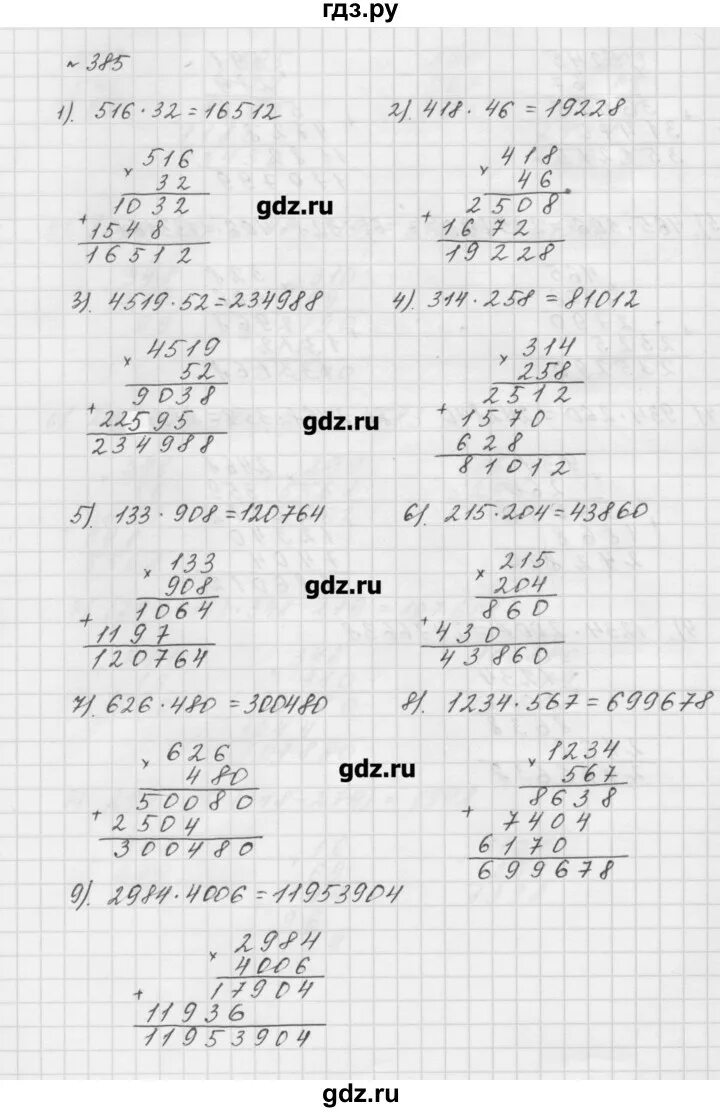 гдз.ру
№ 385
1). 516 · 32 = 16512
× 516
32
1032
+ 1548
16512
2). 418 · 46 = 19228
× 418
46
2508
+ 1672
19228
gdz.ru
3). 4519 · 52 = 234988
× 4519
52
9038
+ 22595
234988
4). 314 · 258 = 81012
× 314
258
2512
+ 1570
628
81012
gdz.ru
5). 133 · 908 = 120764
× 133
908
1064
+ 1197
120764
6). 215 · 204 = 43860
× 215
204
860
+ 430
43860
gdz.ru
7). 626 · 480 = 300480
× 626
480
50080
+ 2504
300480
8). 1234 · 567 = 699678
× 1234
567
8638
+ 7404
6170
699678
gdz.ru
9). 2984 · 4006 = 11953904
× 2984
4006
17904
+ 11936
11953904
gdz.ru